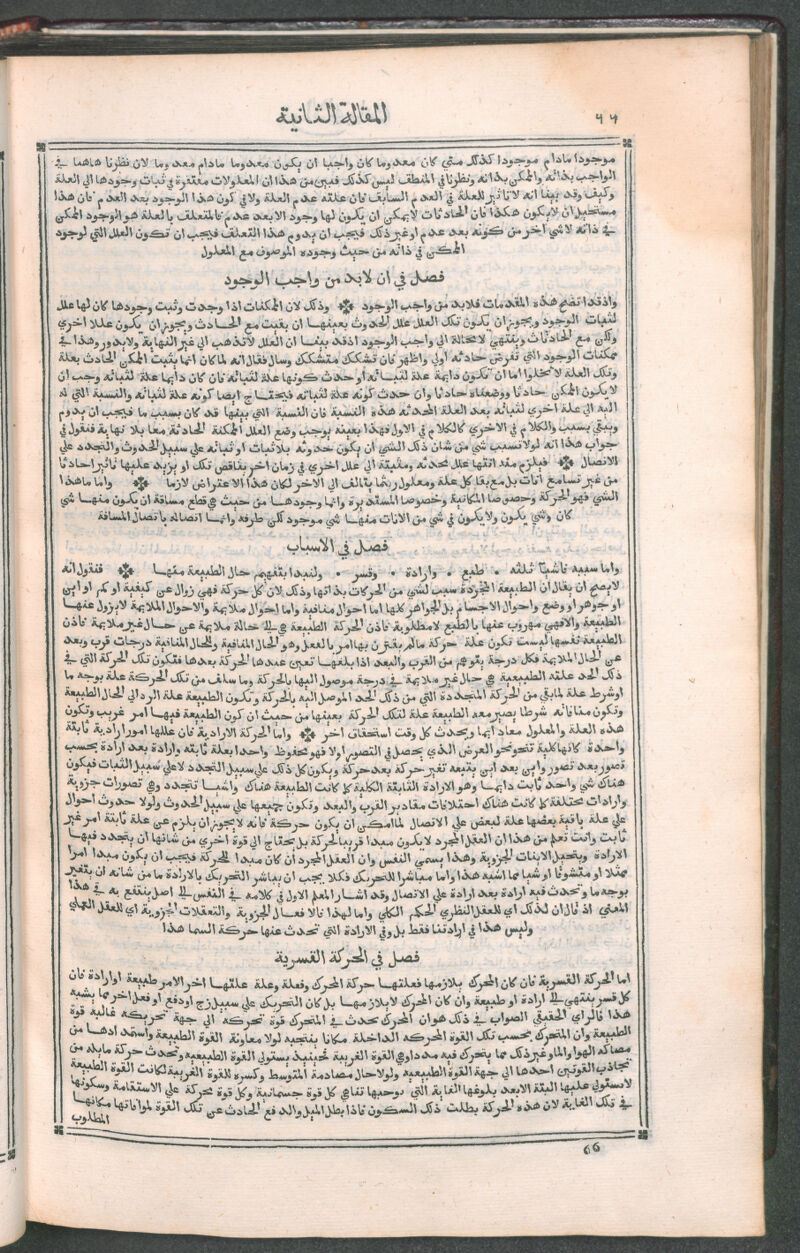 المقالة الثانية
٦٦
موجودا مادام موجودا كذلك متي كان معدوما كان واجبا ان يكون معدوما مادام معدوما لان نظرنا هاهنا في
الواجب بذاته والممكن بذاته ونظرنا في المنطق ليس كذلك فبين من هذا ان المعلولات مفتقرة في ثبات وجودها الي العلة
وكيف وقد بينا انه لا تاثير للعلة في العدم السابق فان علته عدم العلة ولا في كون هذا الوجود بعد العدم فان هذا
مستحيل ان لا يكون هكذا فان الحادثات لا يمكن ان يكون لها وجود الا بعد عدم فالمتعلف بالعلة هو الوجود الممكن
في ذاته لا شي اخر من كونه بعد عدم او غير ذلك فيجب ان يدوم هذا التعلف فيجب ان تكون العلل التي لوجود
الممكن في ذاته من حيث وجوده الموصوف مع المعلول
فصل في ان لابد من واجب الوجود
واذ قد اتضح هذه المقدمات فلابد من واجب الوجود وذلك لان الممكنات اذا وجدت وثبت وجودها كان لها علل
لثبات الوجود ويجوز ان يكون تلك العلل علل الحدوث بعينها ان بقيت مع الحادث ويجوز ان يكون عللا اخري
ولكن مع الحادثات وينتهي لا محالة الي واجب الوجود اذ قد بينا ان العلل لا تذهب الي غير النهاية ولا يدور وهذا في
ممكنات الوجود التي تفرض حادثه اولي واظهر فان تشكك متشكك وسال فقال انه لما كان انما يثبت الممكن الحادث بعلة
وتلك العلة لا تخلوا اما ان تكون دايمة علة لثباته او حدث كونها علة لثباته فان كان دايما علة لثباته وجب ان
لا يكون الممكن حادثا ووضعناه حادثا وان حدث كونه علة لثباته فيحتاج ايضا كونه علة لثباته والنسبة التي له
اليه الي علة اخري لثباته بعد العلة المحدثه هذه النسبة فان النسبة التي بينها قد كان بسبب ما فيجب ان يدوم
ويبقي بسبب والكلام في الاخري كالكلام في الاول فهذا بعينه يوجب وضع العلل الممكنة الحادثة معا بلا نهاية فنقول في
جواب هذا انه لولا تسبب شي من شان ذلك الشي ان يكون حدوثه بلا ثبات او ثباته علي سبيل الحدوث والتجدد علي
الاتصال
من غير تسامع انات بل مع بقا كل علة ومعلول ريثما يتالف الي الاخر لكان هذا الاعتراض لازما واما ما هذا
الشي فهو الحركة وخصوصا المكانية وخصوصا المستديرة وانما وجودها من حيث هي قطع مسافة ان يكون منها شي
كان وشي يكون ولا يكون في شي من الانات منها شي موجود لكن طرفه وانما اتصاله باتصال المسافة
فصل في الاسباب
واما سببه فاشيآ ثلثه • طبع • وارادة • وقسر • ولنبدا بتفهيم حال الطبيعة منها فنقول انه
لا يصح ان يقال ان الطبيعة المجردة سبب لشي من الحركات بذاتها وذلك لان كل حركة فهي زوال عن كيفية او كم او اين
او جوهر او وضع واحوال الاجسام بل الجواهر كلها اما احوال منافية واما احوال ملايمة والاحوال الملايمة لا يزول عنها
الطبيعة والا فهي مهروب عنها بالطبع لا مطلوبة فاذن الحركة الطبيعة هي الي حالة ملايمة عن حال غير ملايمة فاذن
الطبيعة نفسها ليست تكون علة حركة مالم يقترن بها امر بالفعل وهو الحال المنافية وللحال المنافية درجات قرب وبعد
عن الحال الملايمة فكل درجة يتوهم من القرب والبعد اذا بلغها تعين عندها الحركة بعدها فتكون تلك الحركة التي في
ذلك الحد علته الطبيعية هي حال غير ملايمة في درجة موصول اليها بالحركة وما سلف من تلك الحركة علة بوجه ما
او شرط علة لما بقي من الحركة المتجددة التي من ذلك الحد الموصل اليه بالحركة وتكون الطبيعة علة الرد الي الحال الطبيعة
وتكون منافاته شرطا يصير معه الطبيعة علة لتلك الحركة بعينها من حيث ان كون الطبيعة فيها امر غريب وتكون
هذه العلة والمعلول معا دايما ويحدث كل وقت استحقاق اخر واما الحركة الارادية فان عللها امور ارادية ثابتة
واحدة كانها كلية تنحو نحو العرض الذي يحصل في التصور اولا فهو محفوظ واحد بعلة ثابته وارادة بعد ارادة بحسب
تصور بعد تصور واين بعد اين يتبعه تغير حركة بعد حركة ويكون كل ذلك علي سبيل التجدد لا علي سبيل الثبات فيكون
هناك شي واحد ثابت دايما وهو الارادة الثابتة الكلية كما كانت الطبيعة هناك واشيا تتجدد وهي تصورات جزوية
وارادات مختلفة كما كانت هناك اختلافات مقادير القرب والبعد وتكون جميعها علي سبيل الحدوث ولولا حدوث احوال
علي علة باقية بعضها علة لبعض علي الاتصال لما امكن ان يكون حركة فانه لا يجوز ان يلزم عن علة ثابتة امر غير
ثابت وانت تعلم من هذا ان العقل المجرد لا يكون مبدا قريبا لحركة بل يحتاج الي قوة اخري من شانها ان يتجدد فيها
الارادة ويتخيل الاينات الجزوية وهذا يسمي النفس وان العقل المجرد ان كان مبدا للحركة فيجب ان يكون مبدا امرا
ممثلا او متشوقا او شيا مما اشبه هذا واما مباشرا للتحريك فكلا يجب ان يباشر التحريك بالارادة ما من شانه ان يتغير
بوجه ما ويحدث فيه ارادة بعد ارادة علي الاتصال وقد اشار المعلم الاول في كلامه في النفس الي اصل ينتفع به في هذا
المعني اذ قال ان لذلك اي للعقل النظري الحكم الكلي واما لهذا فالافعال الجزوية والتعقلات الجزوية اي للعقل العملي
وليس هذا في ارادتنا فقط بل وفي الارادة التي تحدث عنها حركة السما هذا
فصل في الحركة القسرية
اما الحركة القسرية فان كان المحرك يلازمها فعلتها حركة المحرك وفعلة وعلة علتها اخر الامر طبيعة او ارادة فان
كل قسر ينتهي الي ارادة او طبيعة وان كان المحرك لا يلازمها بل كان التحريك علي سبيل زج او دفع او فعل اخر مما يشبه
هذا فالراي الحقيقي الصواب في ذلك هو ان المحرك يحدث في المتحرك قوة تحركه الي جهة تحريكه غالبة قوة
الطبيعة وان المتحرك بحسب تلك القوة المحركه الداخلة مكانا ينتحيه لولا معاونة القوة الطبيعة واستمدادها من
مصاكه الهوا والما وغير ذلك مما يتحرك فيه مددا يوهي القوة الغريبة فحينيذ يستولي القوة الطبيعيه وتحدث حركة مايله من
تجاذب القوتين احدها الي جهة القوة الطبيعيه ولولا حال مصادمة المتوسط وكسره للقوة الغريبة لكانت القوة الطبيعة
لا يستولي عليها البتة الا بعد بلوغها الغاية التي يوجبها تناهي كل قوة جسمانية وكل قوة محركة علي الاستقامة وسكونها
في تلك الغاية لان هذه الحركة يطلب ذلك السكون فاذا بطل الميل والدفع الحادث عن تلك القوة لموافاتها مكانها
المطلوب
66